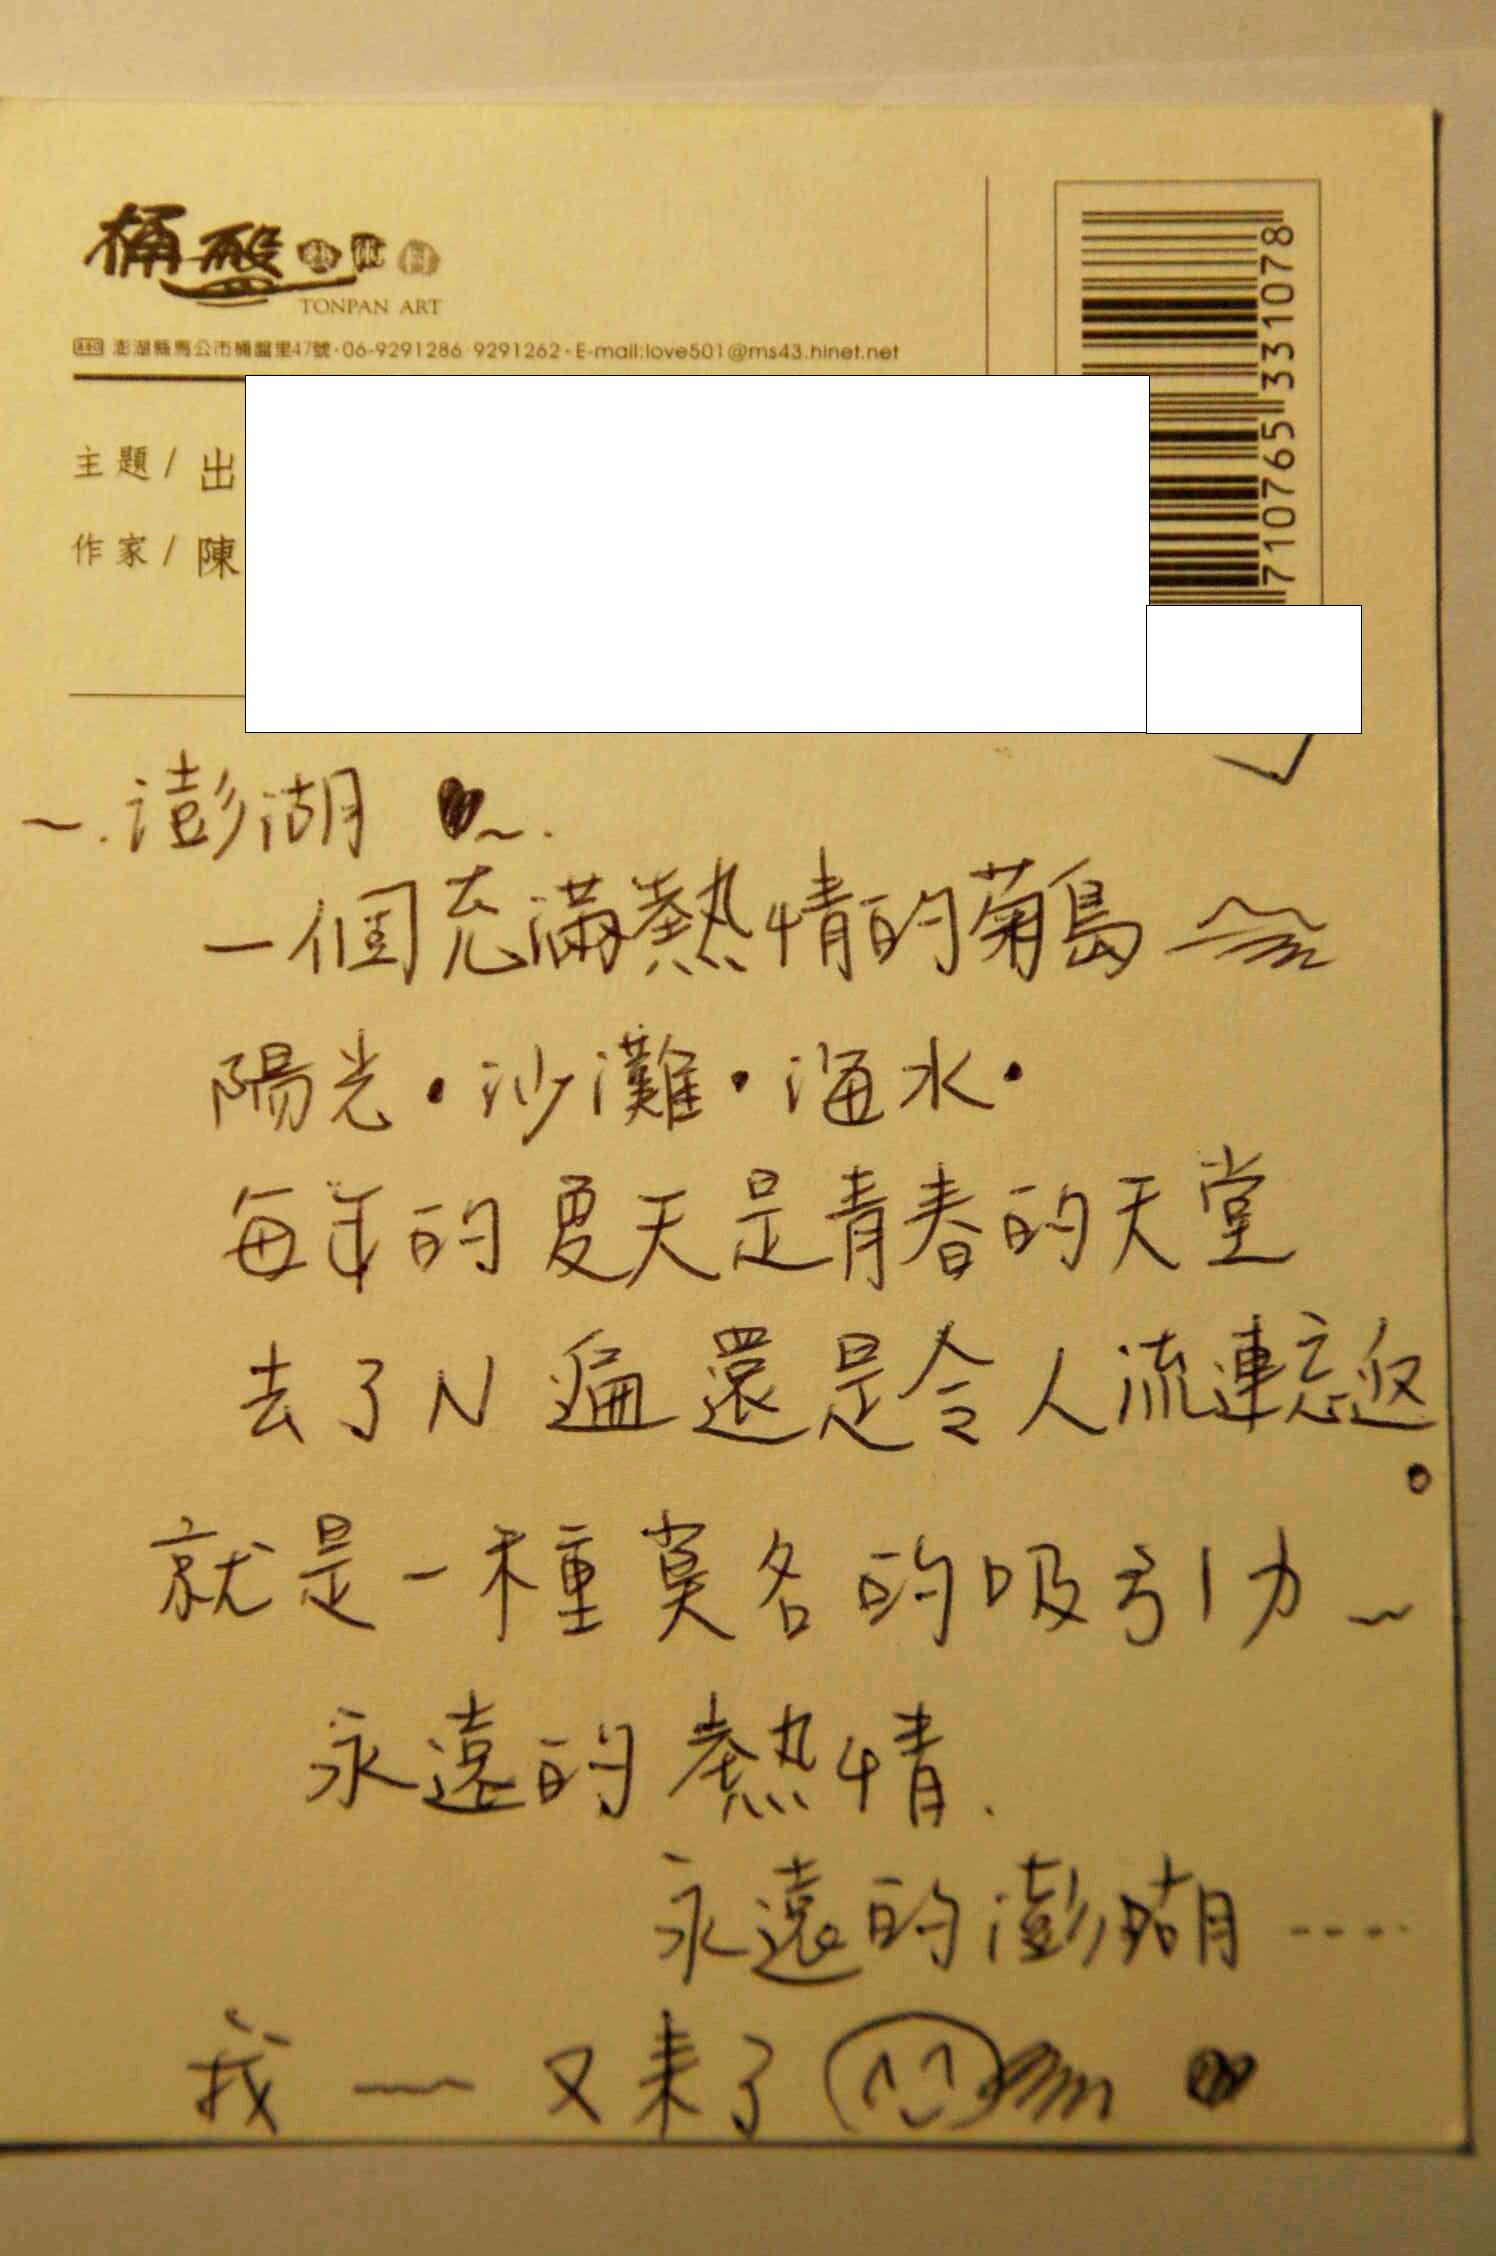 桶盤藝術村
TONPAN ART
880 澎湖縣馬公市桶盤里47號·06-9291286 9291262·E-mail:love501@ms43.hinet.net
主題/出
作家/陳
710765 331078
~.澎湖 ~.
一個充滿熱情的菊島
陽光·沙灘·海水·
每年的夏天是青春的天堂
去了N遍還是令人流連忘返。
就是一種莫名的吸引力~
永遠的熱情.
永遠的澎湖----
我~~又来了